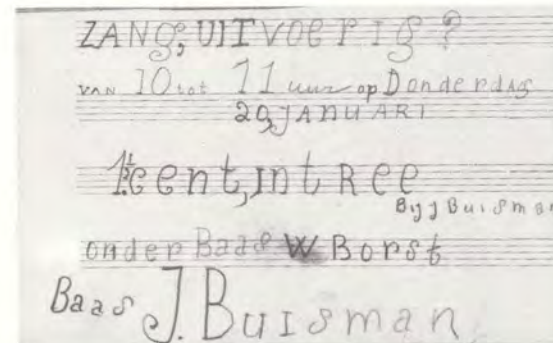 ZANg, UITVOeRIg?
VAN 10 tot 11 uur op DonderdAg
29 JANUARI
1½ cent, IntRee
By J Buisman
onder Baas W Borst
Baas J. Buisman